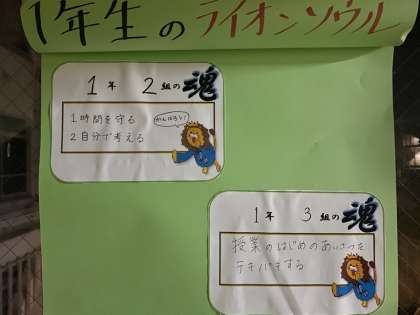 1年生のライオンソウル
1年 2組の魂
1時間を守る
2自分で考える
がんばろう!
1年 3組の魂
授業のはじめのあいさつを
テキパキする